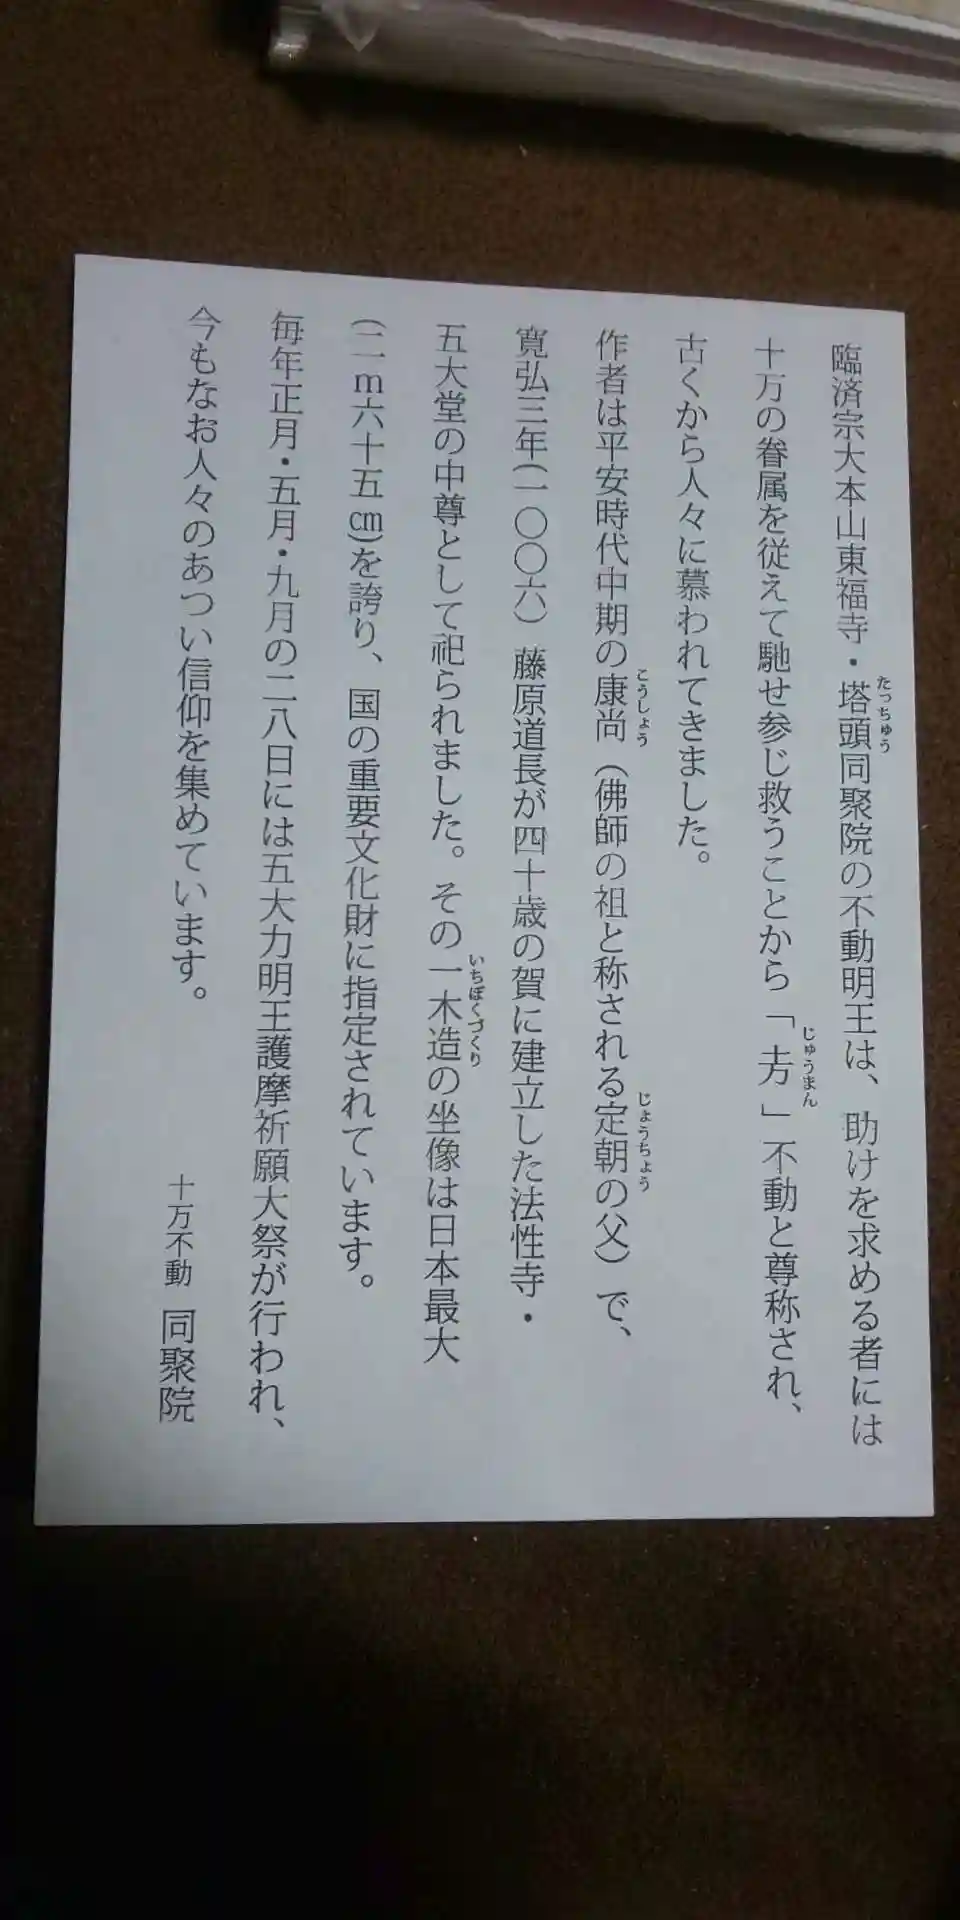 臨済宗大本山東福寺・塔頭同聚院の不動明王は、助けを求める者には
たっちゅう
十万の眷属を従えて馳せ参じ救うことから「𡈽」不動と尊称され、
じゅうまん
古くから人々に慕われてきました。
作者は平安時代中期の康尚（佛師の祖と称される定朝の父）で、
こうしょう
じょうちょう
寛弘三年(一〇〇六）藤原道長が四十歳の賀に建立した法性寺・
五大堂の中尊として祀られました。その一木造の坐像は日本最大
いちぼくづくり
(二ｍ六十五㎝)を誇り、国の重要文化財に指定されています。
毎年正月・五月・九月の二八日には五大力明王護摩祈願大祭が行われ、
今もなお人々のあつい信仰を集めています。
十万不動 同聚院